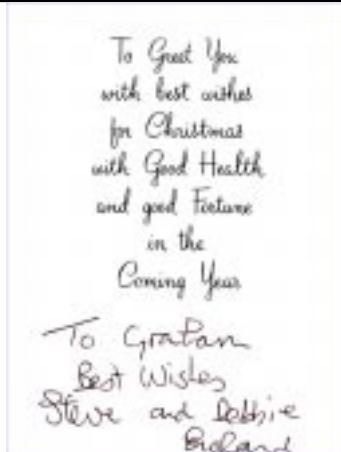 To Greet You
with best wishes
for Christmas
with Good Health
and good Fortune
in the
Coming Year
To Graham
Best Wishes
Steve and Debbie